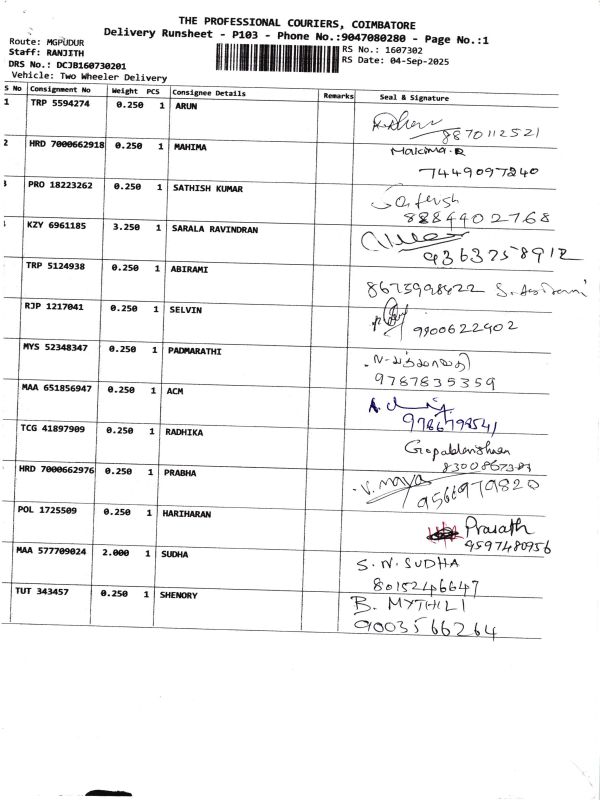 THE PROFESSIONAL COURIERS, COIMBATORE
Delivery Runsheet - P103 - Phone No.:9047080280 - Page No.:1
Route: MGPUDUR
Staff: RANJITH
RS No.: 1607302
DRS No.: DCJB160730201
RS Date: 04-Sep-2025
Vehicle: Two Wheeler Delivery
S No Consignment No Weight PCS Consignee Details Remarks Seal & Signature
1 TRP 5594274 0.250 1 ARUN
8870112521
2 HRD 7000662918 0.250 1 MAHIMA Mahima.R
7449097840
3 PRO 18223262 0.250 1 SATHISH KUMAR Sathish
8884402768
KZY 6961185 3.250 1 SARALA RAVINDRAN
9363758912
TRP 5124938 0.250 1 ABIRAMI
8675998422 S. Abirami
RJP 1217041 0.250 1 SELVIN
9900622402
MYS 52348347 0.250 1 PADMARATHI
9787835359
MAA 651856947 0.250 1 ACM
9786798541
TCG 41897909 0.250 1 RADHIKA Gopalakrishnan
HRD 7000662976 0.250 1 PRABHA V. Maya
9566979820
POL 1725509 0.250 1 HARIHARAN Prasath
9597480956
MAA 577709024 2.000 1 SUDHA S. N. SUDHA
8015246647
TUT 343457 0.250 1 SHENORY B. MYTHILI
9003566264